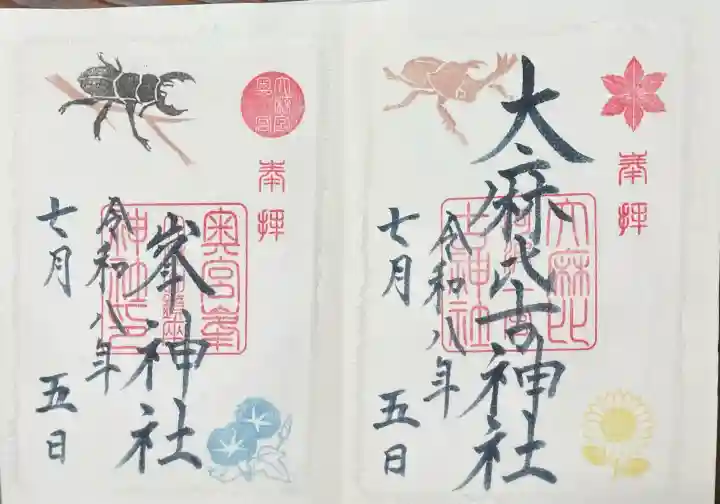 奉拝
大麻比古神社
令和八年
七月
五日
大麻比
古神社
奉拝
峯神社
令和八年
七月
五日
奥宮峯
神社